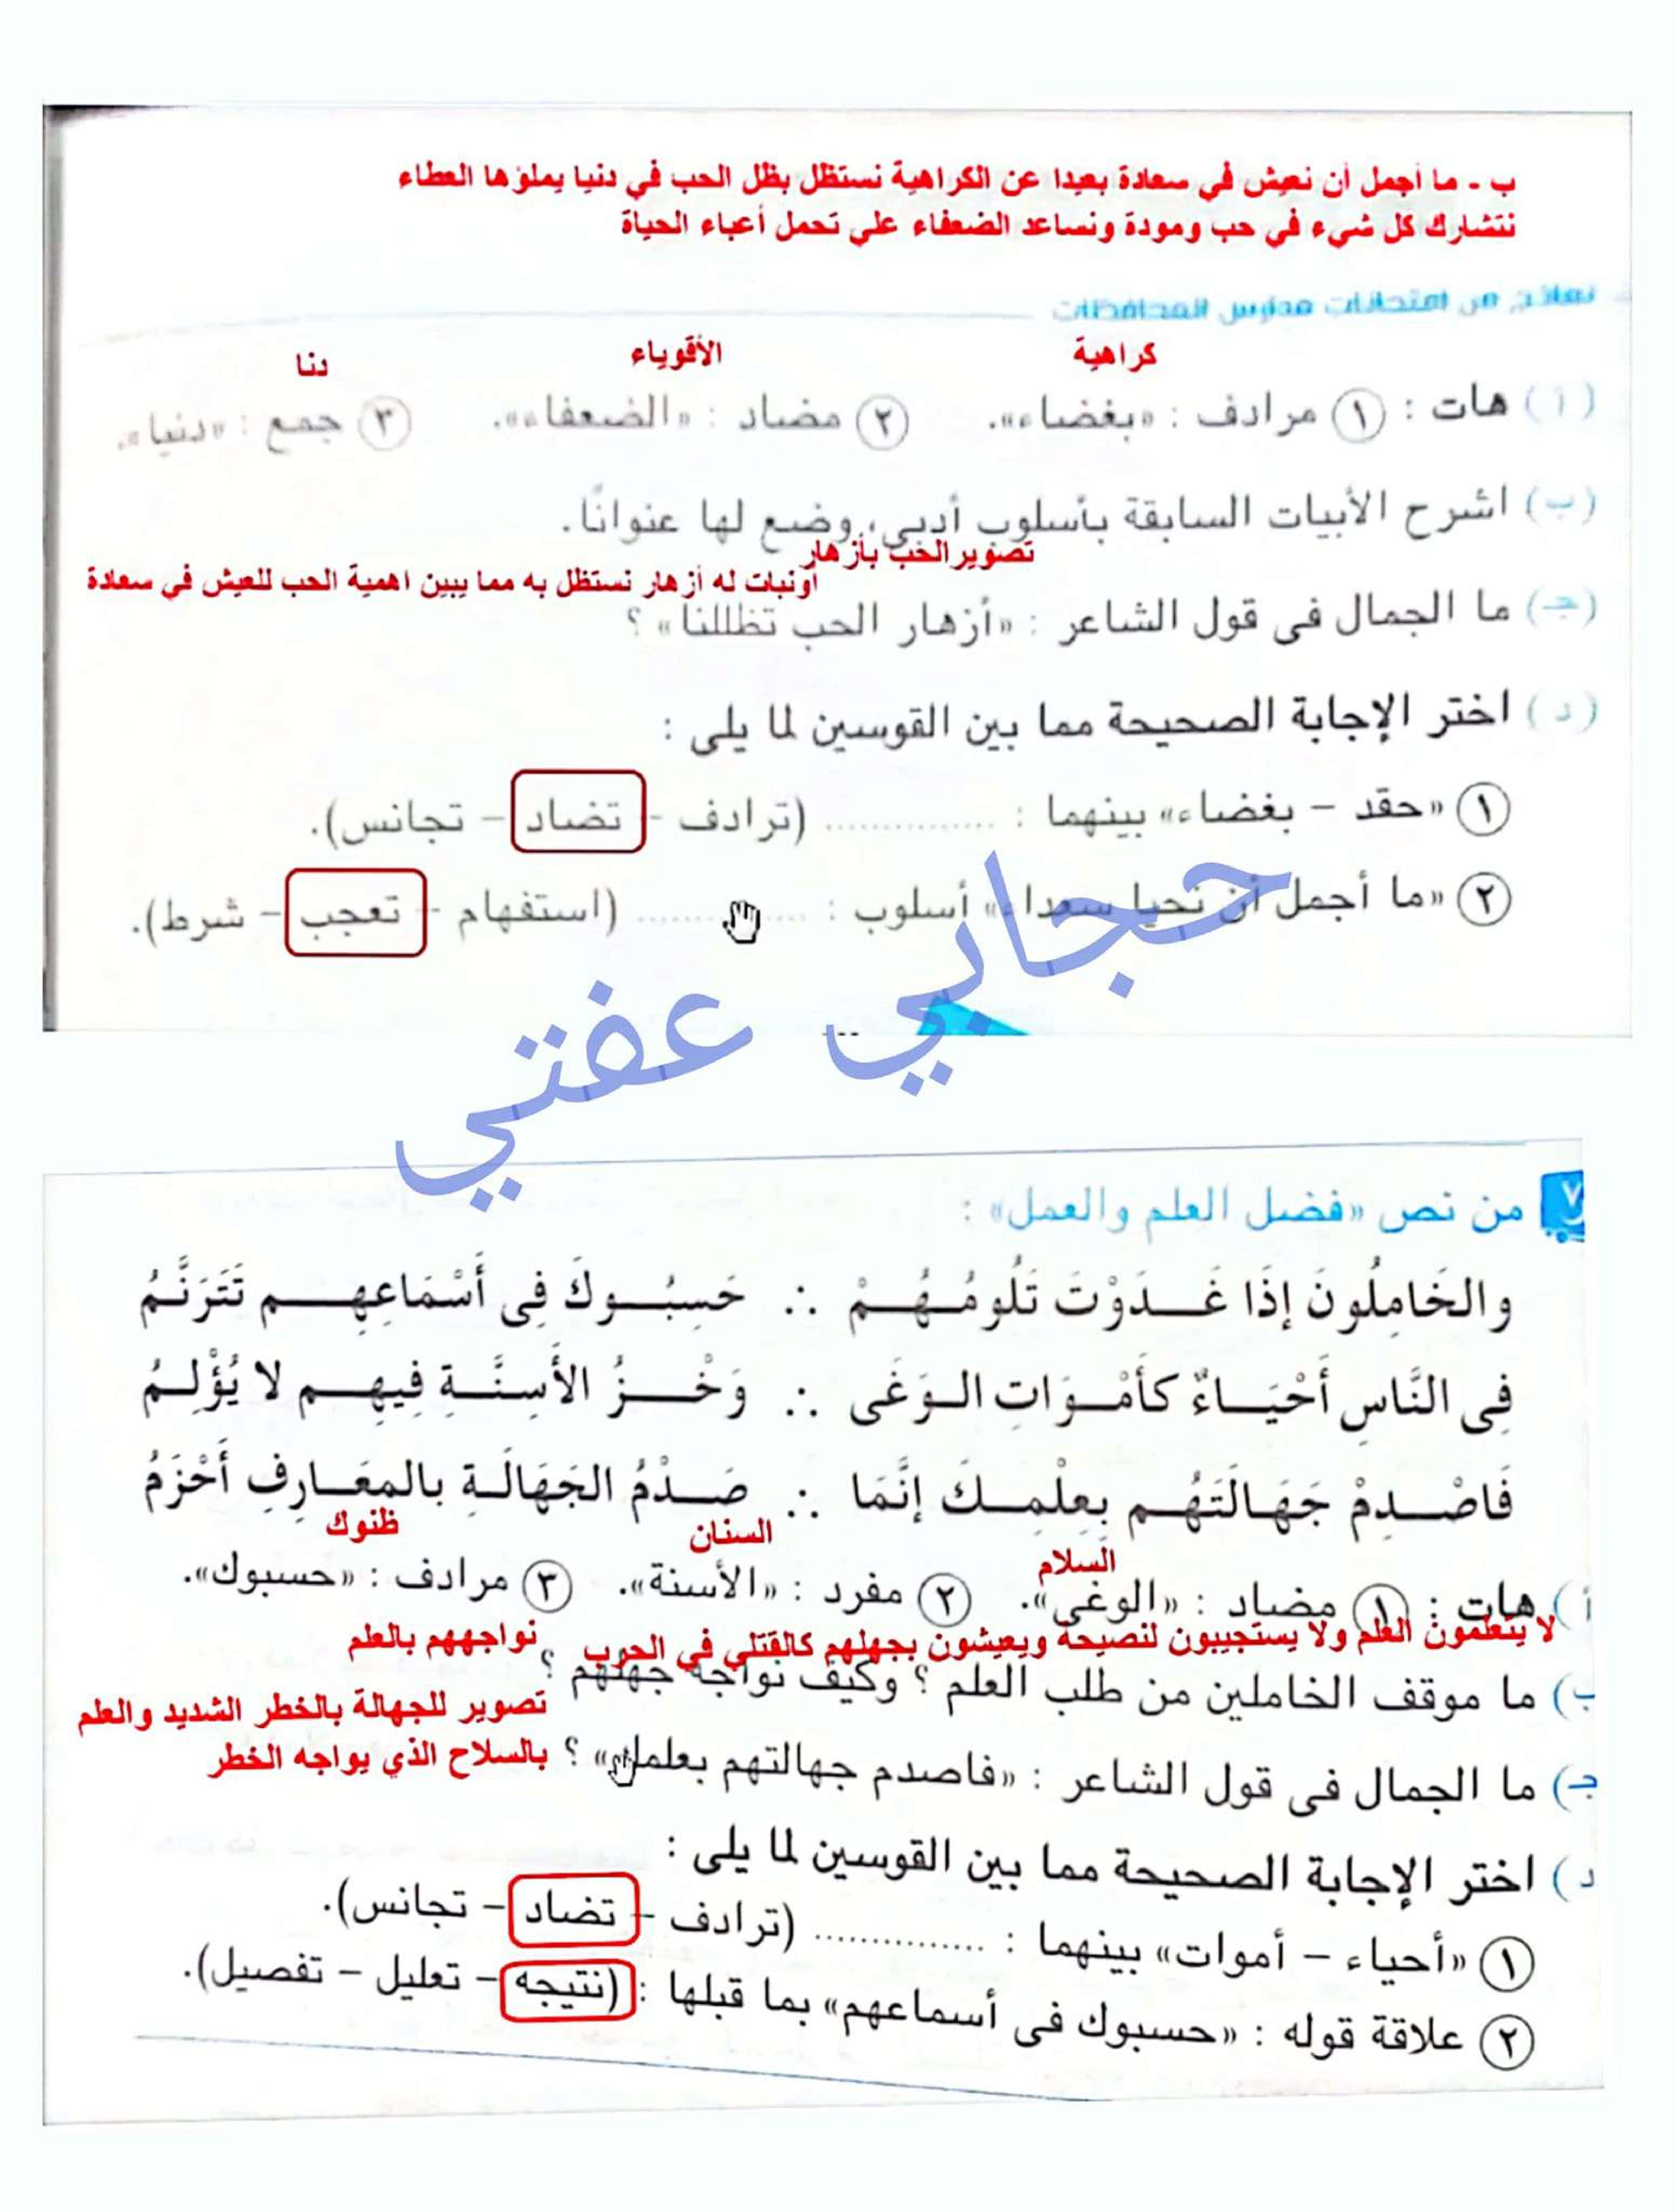 ب - ما أجمل أن نعيش في سعادة بعيدا عن الكراهية نستظل بظل الحب في دنيا يملؤها العطاء
نتشارك كل شيء في حب ومودة ونساعد الضعفاء على تحمل أعباء الحياة
نماذج من امتحانات مدارس المحافظات
كراهية الأقوياء دنا
( أ ) هات : ١ مرادف : «بغضاء». ٢ مضاد : «الضعفاء». ٣ جمع : «دنيا».
(ب) اشرح الأبيات السابقة بأسلوب أدبى، وضع لها عنوانًا.
تصوير الحب بأزهار
أونبات له أزهار نستظل به مما يبين اهمية الحب للعيش في سعادة
(جـ) ما الجمال فى قول الشاعر : «أزهار الحب تظللنا» ؟
( د ) اختر الإجابة الصحيحة مما بين القوسين لما يلى :
١ «حقد – بغضاء» بينهما : ............... (ترادف – تضاد – تجانس).
٢ «ما أجمل أن نحيا سعداء» أسلوب : ............... (استفهام – تعجب – شرط).
حجابي عفتي
٧ من نص «فضل العلم والعمل» :
والخَامِلُونَ إِذَا غَـــدَوْتَ تَلُومُـهُـــمْ ∴ حَسِبُـــوكَ فِى أَسْمَاعِهِـــــم تَتَرَنَّمُ
فِى النَّاسِ أَحْيَـــاءٌ كَأَمْـــوَاتِ الـوَغَى ∴ وَخْـــــزُ الأَسِنَّـــةِ فِيهِـــــم لا يُؤْلِـمُ
فَاصْـــدِمْ جَهَـالَتَهُـــم بِعِلْمِـــكَ إِنَّمَا ∴ صَـــدْمُ الجَهَالَـةِ بالمعَـــارِفِ أَحْزَمُ
السلام السنان ظنوك
أ ) هات : ١ مضاد : «الوغى». ٢ مفرد : «الأسنة». ٣ مرادف : «حسبوك».
لا يتعلمون العلم ولا يستجيبون لنصيحة ويعيشون بجهلهم كالقتلي في الحرب نواجههم بالعلم
ب) ما موقف الخاملين من طلب العلم ؟ وكيف نواجه جهلهم ؟
تصوير للجهالة بالخطر الشديد والعلم
بالسلاح الذي يواجه الخطر
جـ) ما الجمال فى قول الشاعر : «فاصدم جهالتهم بعلمك» ؟
د ) اختر الإجابة الصحيحة مما بين القوسين لما يلى :
١ «أحياء – أموات» بينهما : ............... (ترادف – تضاد – تجانس).
٢ علاقة قوله : «حسبوك فى أسماعهم» بما قبلها : (نتيجه – تعليل – تفصيل).